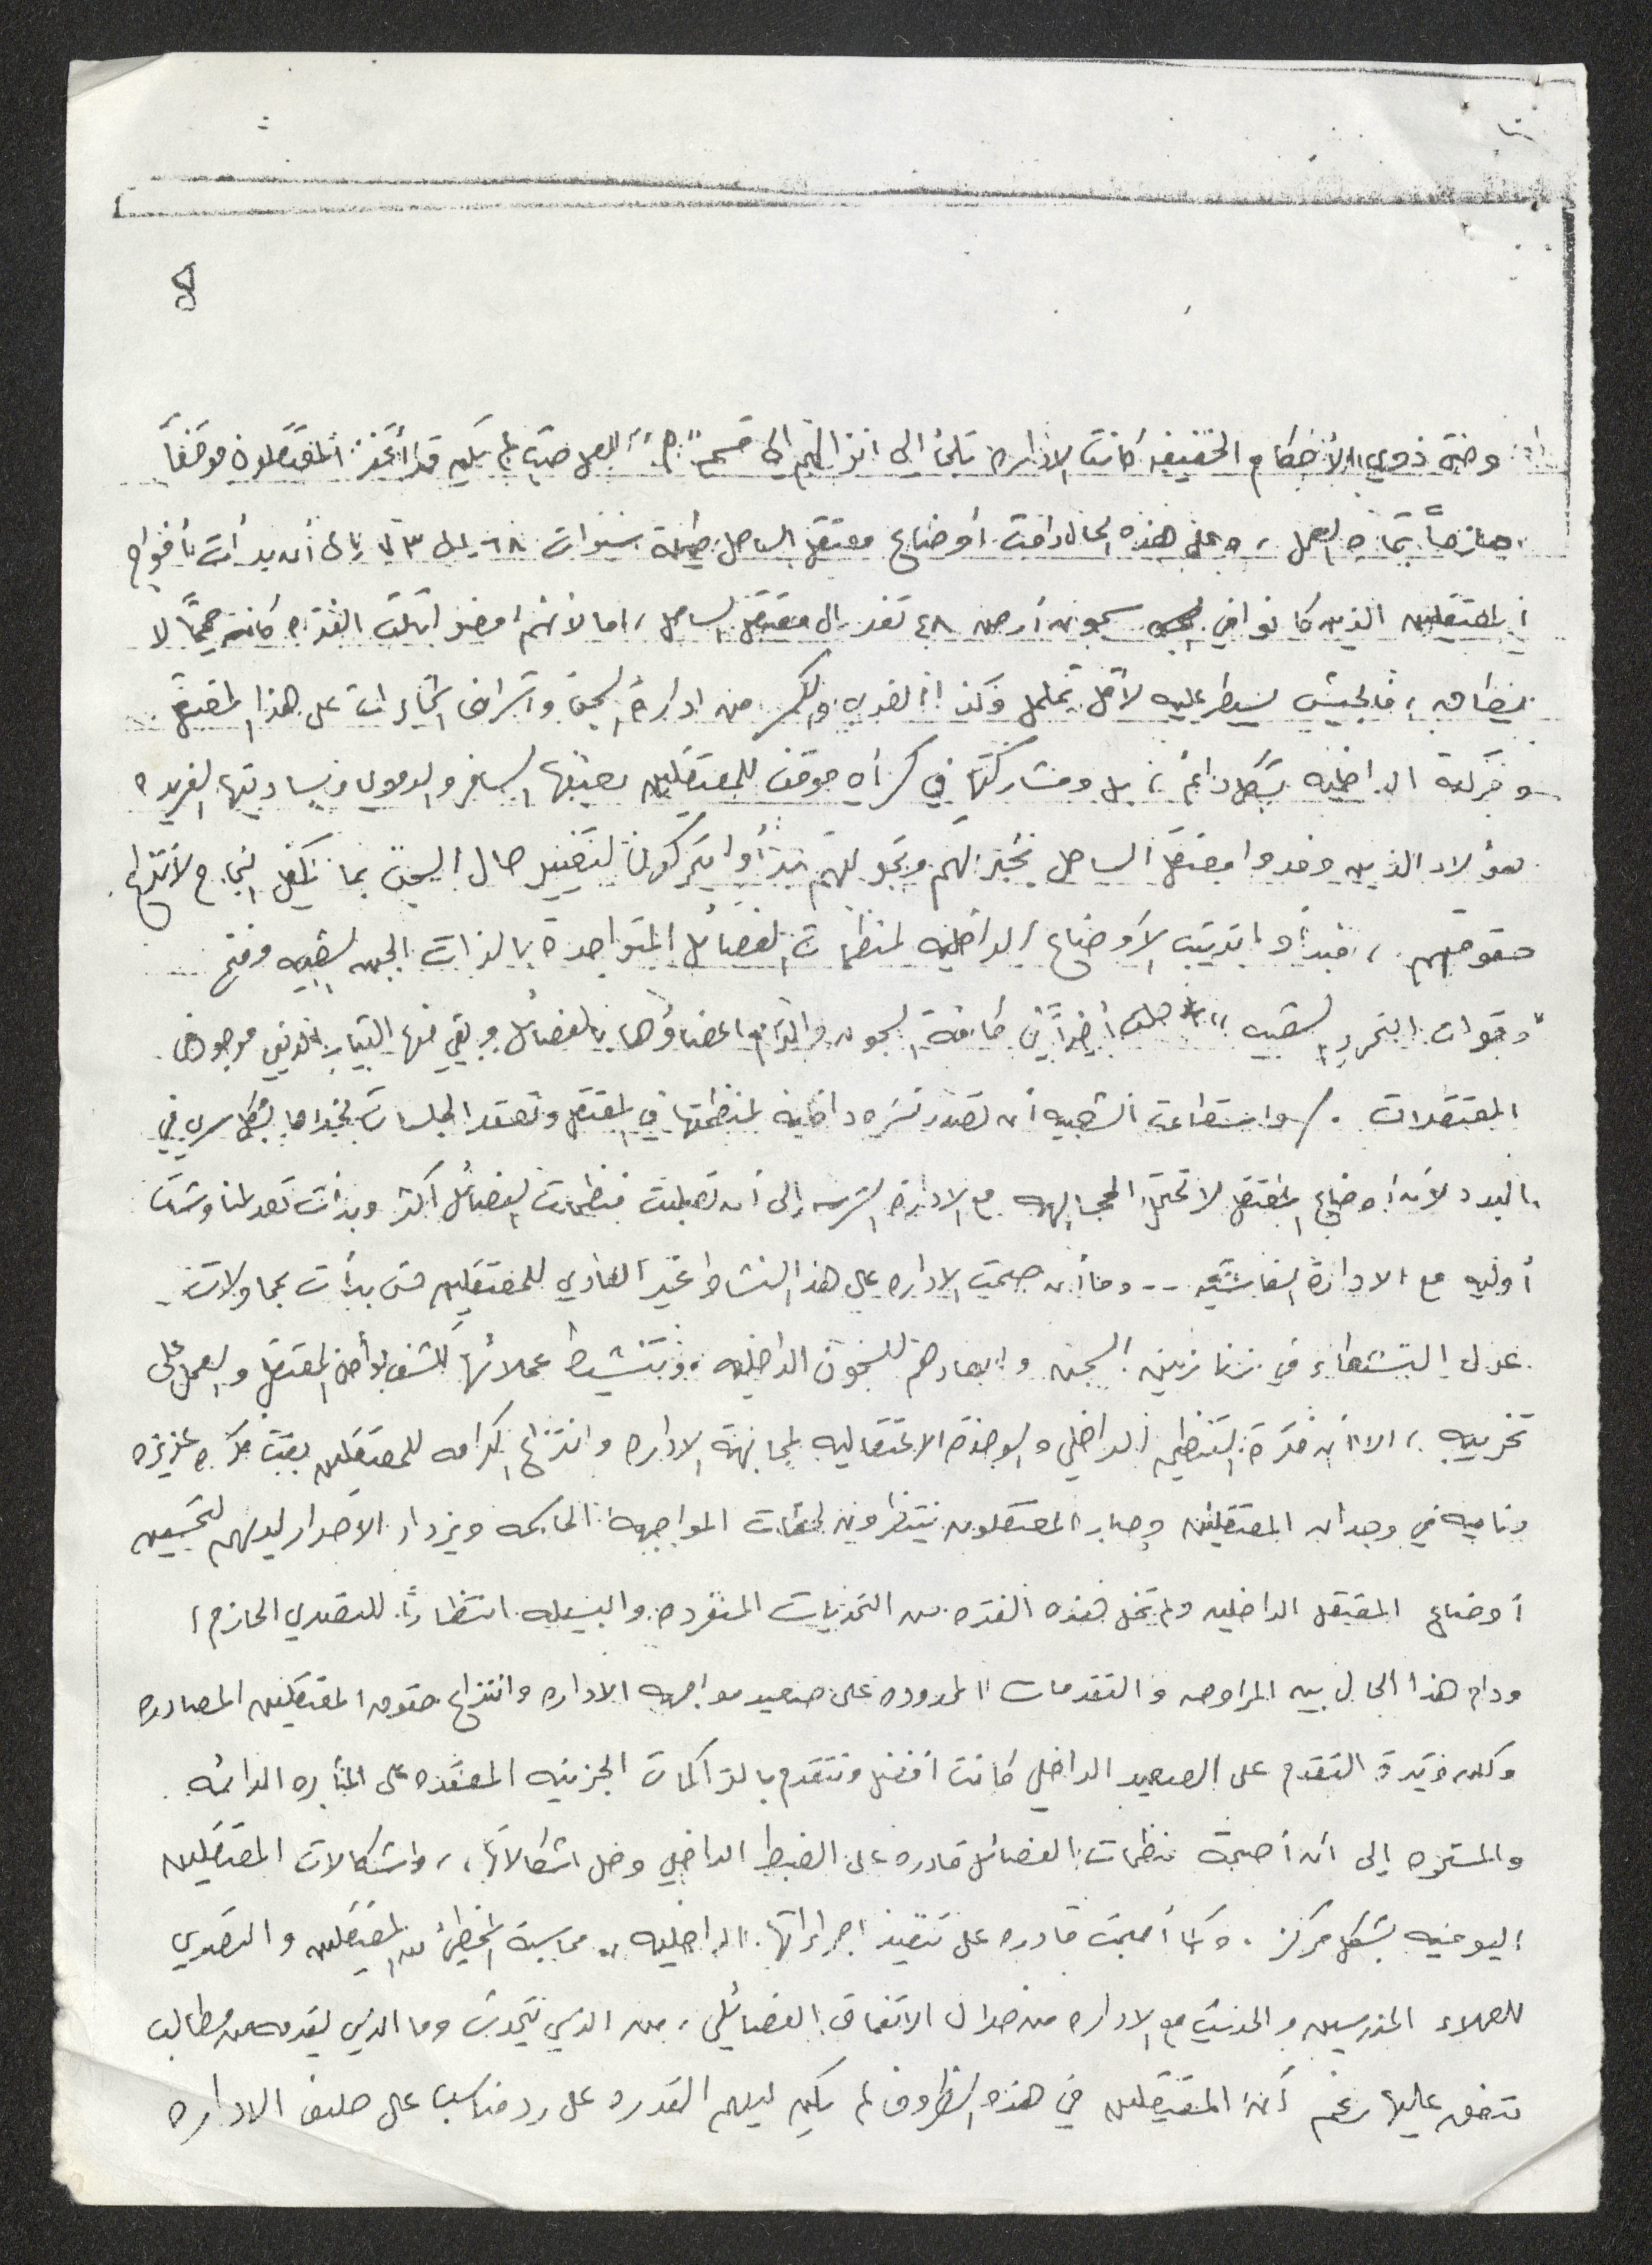 وحتى ذوي الأحكام الخفيفه كانت الاداره تلجأ الى انزالهم الى قسم "ج" للعمل حيث لم يكن قد أتخذ المعتقلون موقفاً
حازماً تجاه العمل ، وعلى هذه الحال دامت أوضاع معتقل الساحل طيلة سنوات ٦٨ الى ٧٣ الى أن بدأت أفواج
المعتقلين الذين كانوا في سجون أرض ٤٨ تفد الى معتقل الساحل ، اما لأنهم امضوا تلك الفتره كانت جحيماً لا
يطاق ، فالجيش يسيطر عليه لأقل تململ وكذا الضرب والكسر من ادارة السجن واشراف المخابرات على هذا المعتقل
وحركته الداخليه بشكل دائم ، بل ومشاركتها في كسر أي موقف للمعتقلين بعنفها السافر والدموي وبساديتها الفريده
هؤلاء الذين وفدوا معتقل الساحل بخبراتهم وتجربتهم بدأوا يتحركون لتغيير حال السجن بما يكفل النجاح لانتزاع
حقوقهم ، فبدأوا بترتيب الأوضاع الداخليه لمنظمات الفصائل المتواجدة بالذات الجبهه الشعبيه وفتح
"وقوات التحرير الشعبيه " * حلت أخيراً في كافة السجون والتزم اعضاؤها بالفصائل وبقي منها التيار الديني موجود في
المعتقلات . / واستطاعت الشعبيه أن تصدر نشره داخلية لمنظمتها في المعتقل وتعقد الجلسات لخدامها بشكل سري في
البدء لأن أوضاع المعتقل لا تحتمل المجابهه مع الاداره الشرسه إلى أن تصلبت منظمات الفصائل أكثر وبدأت تعد لمناوشات
أوليه مع الادارة الفاشيه -- وما أن صحت الاداره على هذا النشاط غير العادي للمعتقلين حتى بدأت بمحاولات
عزل النشطاء في زنازين السجن وابعادهم للسجون الداخليه ، وبتنشيط عملائها لكشف لأمن المعتقل والعمل على
تخريبه ، الا أن فكرة التنظيم الداخلي والوحدة الاعتقاليه لمجابهة الاداره وانتزاع الكرامه للمعتقلين بقيت فكره عزيزه
وناميه في وجدان المعتقلين وصار المعتقلون ينتظرون لحظات المواجهة الحاسمه ويزداد الاصرار لديهم لتحسين
أوضاع المعتقل الداخليه ولم تخل هذه الفتره من التحديات المنفرده والبسيطه انتظاراً للتصدي الحازم ،
ودام هذا الحال بين المراوحه والتقدمات المحدوده على صعيد مواجهه الاداره وانتزاع حقوق المعتقلين المصادره
ولكن وتيرة التقدم على الصعيد الداخلي كانت افضل وتتقدم بالتراكمات الجزئيه المعتمده على المثابره الدائمه
والمستمره إلى أن أصبحت منظمات الفصائل قادره على الضبط الداخلي وحل اشكالاتها ، واشكالات المعتقلين
اليوميه بشكل مركز . وكما أصبحت قادره على تنفيذ اجراءاتها الداخليه ، محاسبة المخطئ من المعتقلين والتصدي
للعملاء المندسين والحديث مع الاداره من خلال الاتفاق الفصائلي ، من الذي يتحدث وما الذي يقدمه من مطالب
متفق عليها رغم أن المعتقلين في هذه الظروف لم يكن لديهم القدره على رد مناسب على صلف الاداره